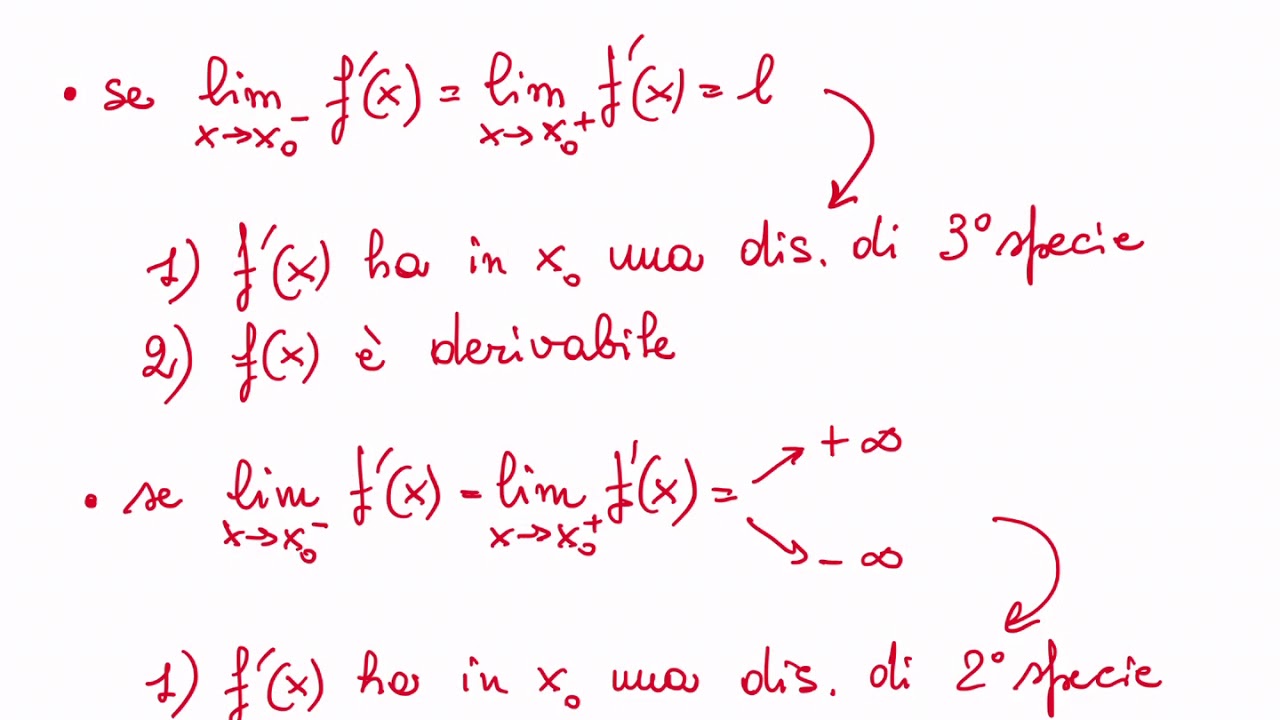 • se lim x→x₀⁻ f'(x) = lim x→x₀⁺ f'(x) = l
1) f'(x) ha in x₀ una dis. di 3° specie
2) f(x) è derivabile
• se lim x→x₀⁻ f'(x) = lim x→x₀⁺ f'(x) = +∞
-∞
1) f'(x) ha in x₀ una dis. di 2° specie